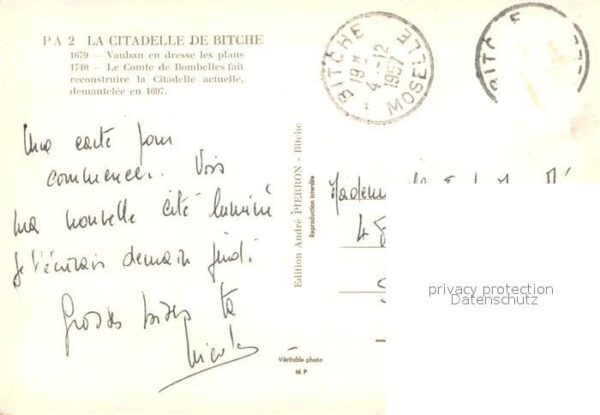 PA 2 LA CITADELLE DE BITCHE
1679 — Vauban en dresse les plans
1740 — Le Comte de Bombelles fait
reconstruire la Citadelle actuelle,
demantelée en 1697.
BITCHE
19 H
4 -12
1957
MOSELLE
BITC E
LLE
Une carte pour
commencer. Vois
ma nouvelle cité lumière
Je t'écrirais demain jeudi.
Grosses bises ta
Nicole
Edition André PIERRON - Bitche
Reproduction interdite
Véritable photo
M P
Mademoiselle
4
privacy protection
Datenschutz